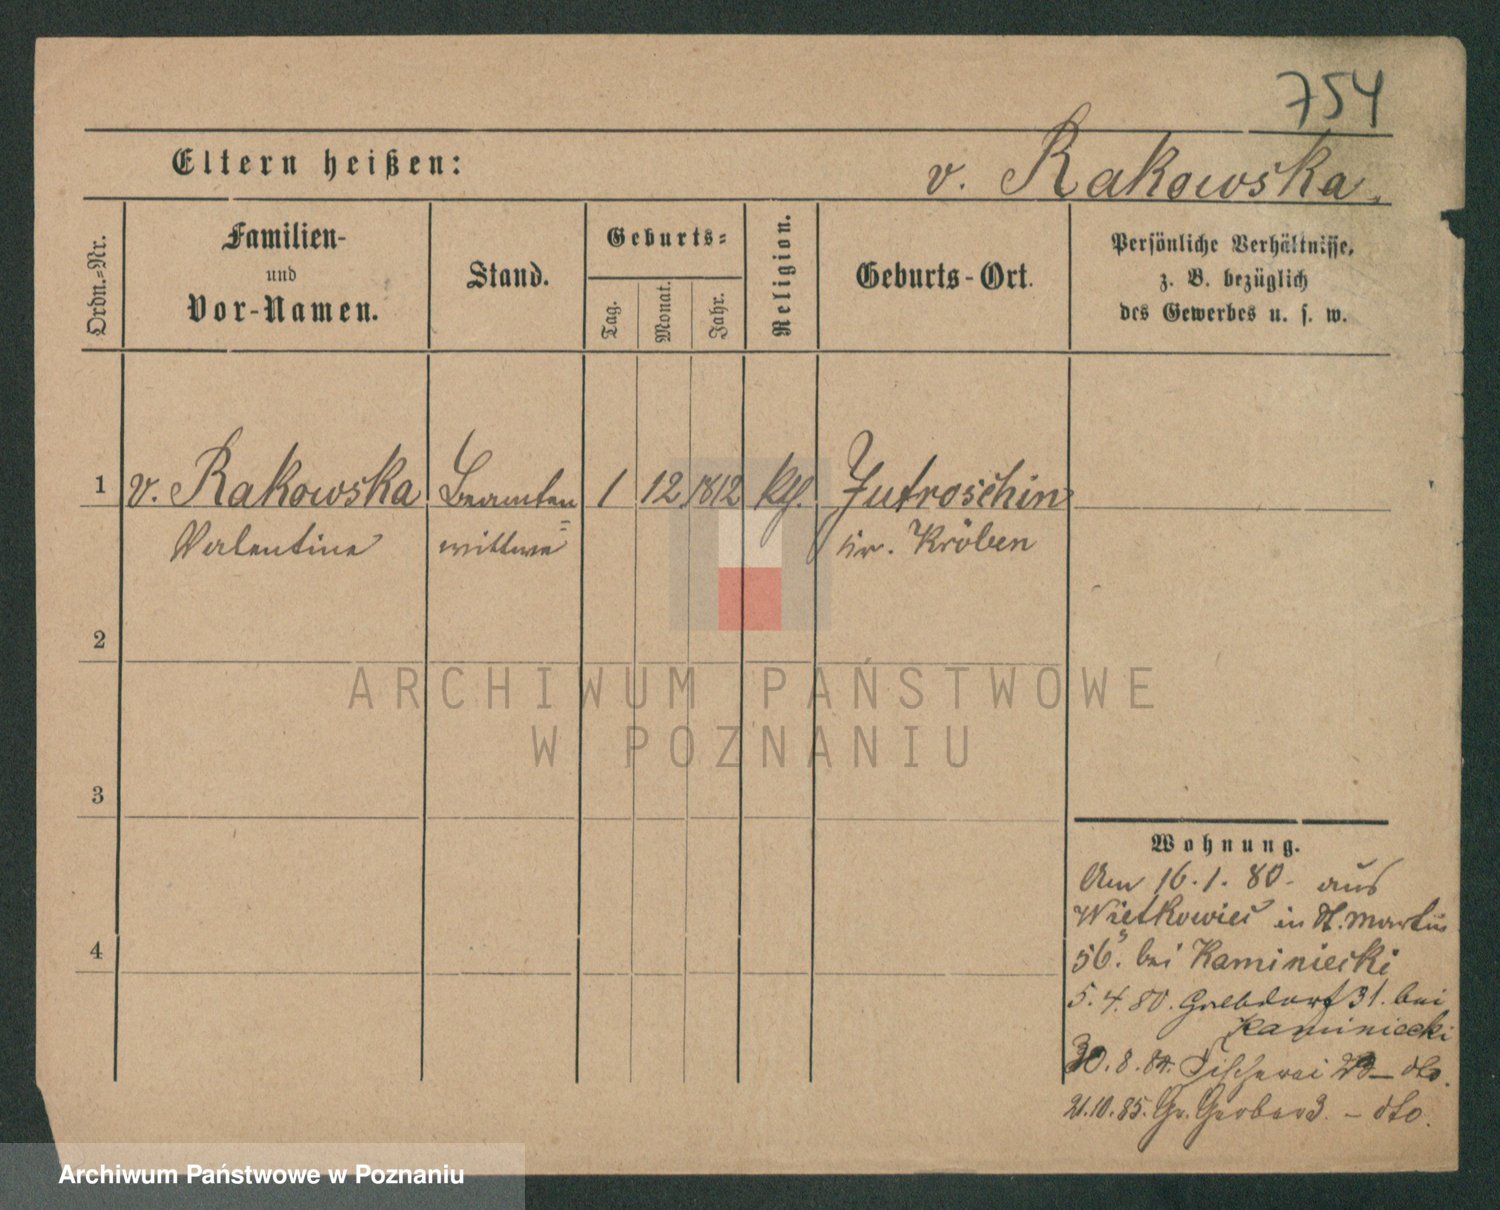 754
Eltern heißen: v. Rakowska.
Ordn.=Nr.
Familien-
und
Vor-Namen.
Stand.
Geburts=
Tag.
Monat.
Jahr.
Religion.
Geburts-Ort.
Persönliche Verhältnisse,
z. B. bezüglich
des Gewerbes u. s. w.
1 v. Rakowska Beamten 1 12 1812 kth. Jutroschin
Valentine = wittwe Kr. Kröben
2
3
4
ARCHIWUM PAŃSTWOWE
W POZNANIU
Wohnung.
Am 16.1.80. aus
in St. Martin
56. bei Kaminiecki
5.4.80. 31. bei
Kaminiecki
30.8.84. Fischerei dto.
21.10.85. Gr. Gerber 3. – dto.
Archiwum Państwowe w Poznaniu